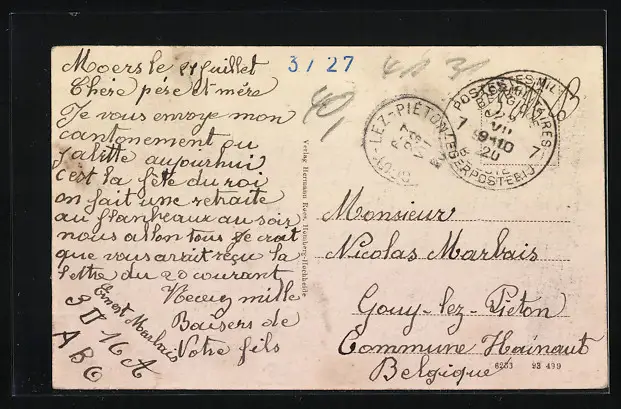 3 / 27
Moers le 21 juillet
Chère père et mère
Je vous envoye mon
cantonement ou
j'alitte aujourhui
c'est la fête du roi
on fait une retraite
au flambeaux au soir
nous allon tous je crait
que vous avait reçu la
lettre du 20 courant
Recevez mille
Baisers de
Votre fils
Ernest Marbais
3 II 16 A
A B O
Verlag Hermann Rees, Homberg-Hochheide
GOUY-LEZ-PIÉTON
POSTES MILITAIRES
BELGIQUE
7 VII 7
9-10
20
LEGERPOSTERIJ
Monsieur
Nicolas Marbais
Gouy-lez-Piéton
Commune Hainaut
Belgique
6253 93 499